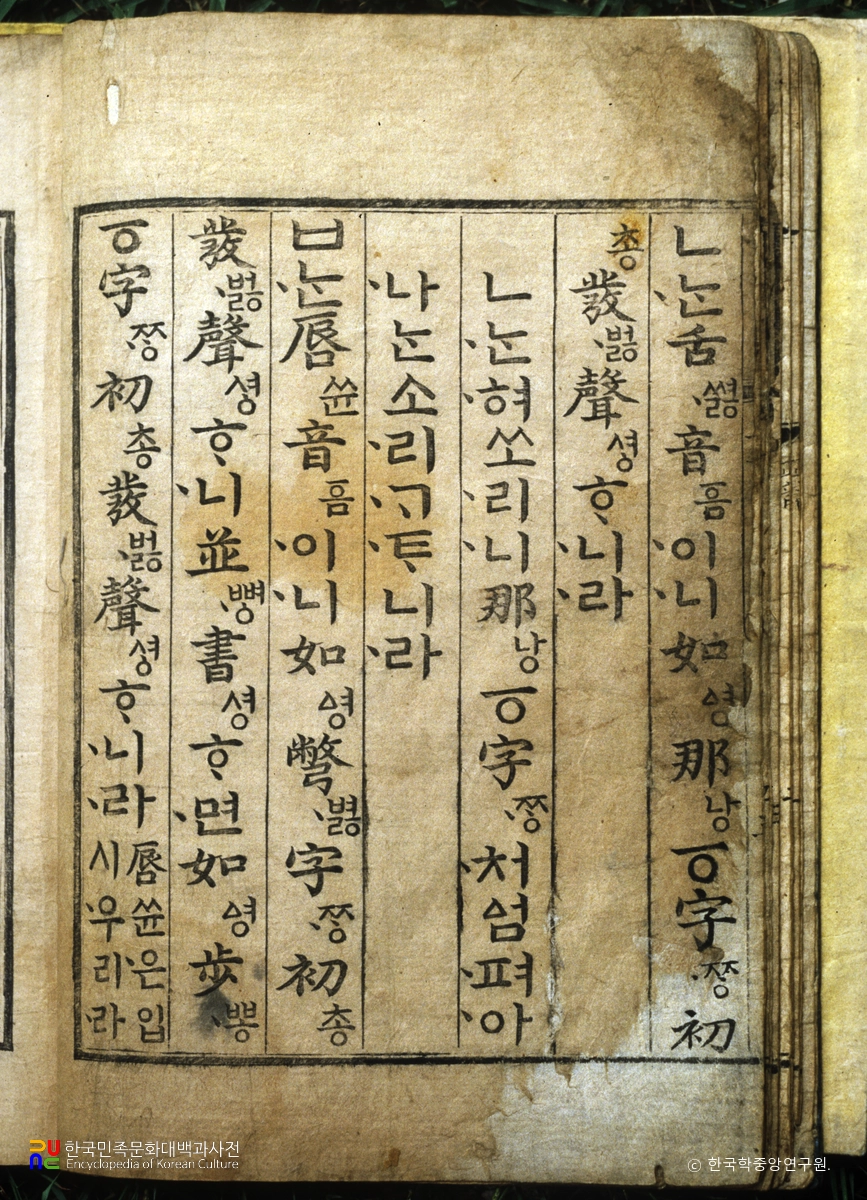 ㄴ·ᄂᆞᆫ舌·쎠ᇙ音흠·이·니如영那낭ㆆ字·ᄍᆞᆼ初
총發·버ᇙ聲셩ᄒᆞ·니·라
ㄴ·ᄂᆞᆫ·혀쏘·리·니那낭ㆆ字·ᄍᆞᆼ·처엄·펴·아
·나ᄂᆞᆫ소·리·ᄀᆞ·ᄐᆞ니·라
ㅂ·ᄂᆞᆫ唇쓘音흠·이·니如영彆·벼ᇙ字·ᄍᆞᆼ初총
發·버ᇙ聲셩ᄒᆞ·니並·뼝書셩ᄒᆞ·면如영步·뽕
ㆆ字·ᄍᆞᆼ初총發·버ᇙ聲셩ᄒᆞ·니·라
唇쓘·은입
시·우리·라
한국민족문화대백과사전
Encyclopedia of Korean Culture
© 한국학중앙연구원.